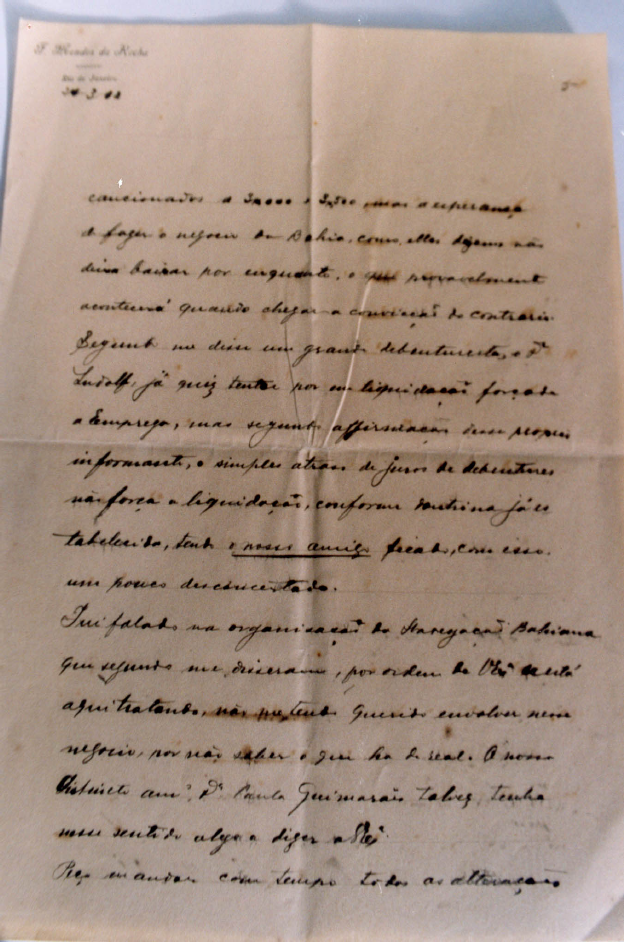 F. Mendes da Rocha
Rio de Janeiro
5
cancionados a 3,000 e 3,500, mas a esperança
de fazer o negocio da Bahia, como elles dizem não
deixa baixar por emquanto, o que provavelmente
acontecerá quando chegar a convicção do contrario.
Segundo me disse um grande debenturista, o Dr
Ludolf, já quiz tentar por em liquidação forçada
a Empreza, mas segundo affirmação desse proprio
informante, o simples atraso de juros de debentures
não força a liquidação, conforme doutrina já es
tabelecida, tendo o nosso amigo ficado, com isso,
um pouco desconcertado.
Fui falado na organisação da Navegação Bahiana
que segundo me disseram, por ordem de VExª está
aqui tratando, não me tendo querido envolver nesse
negocio, por não saber o que ha de real. O nosso
distincto amº Dr Paula Guimarães talvez tenha
nesse sentido algo a dizer a VExª
Peço mandar com tempo todas as alterações